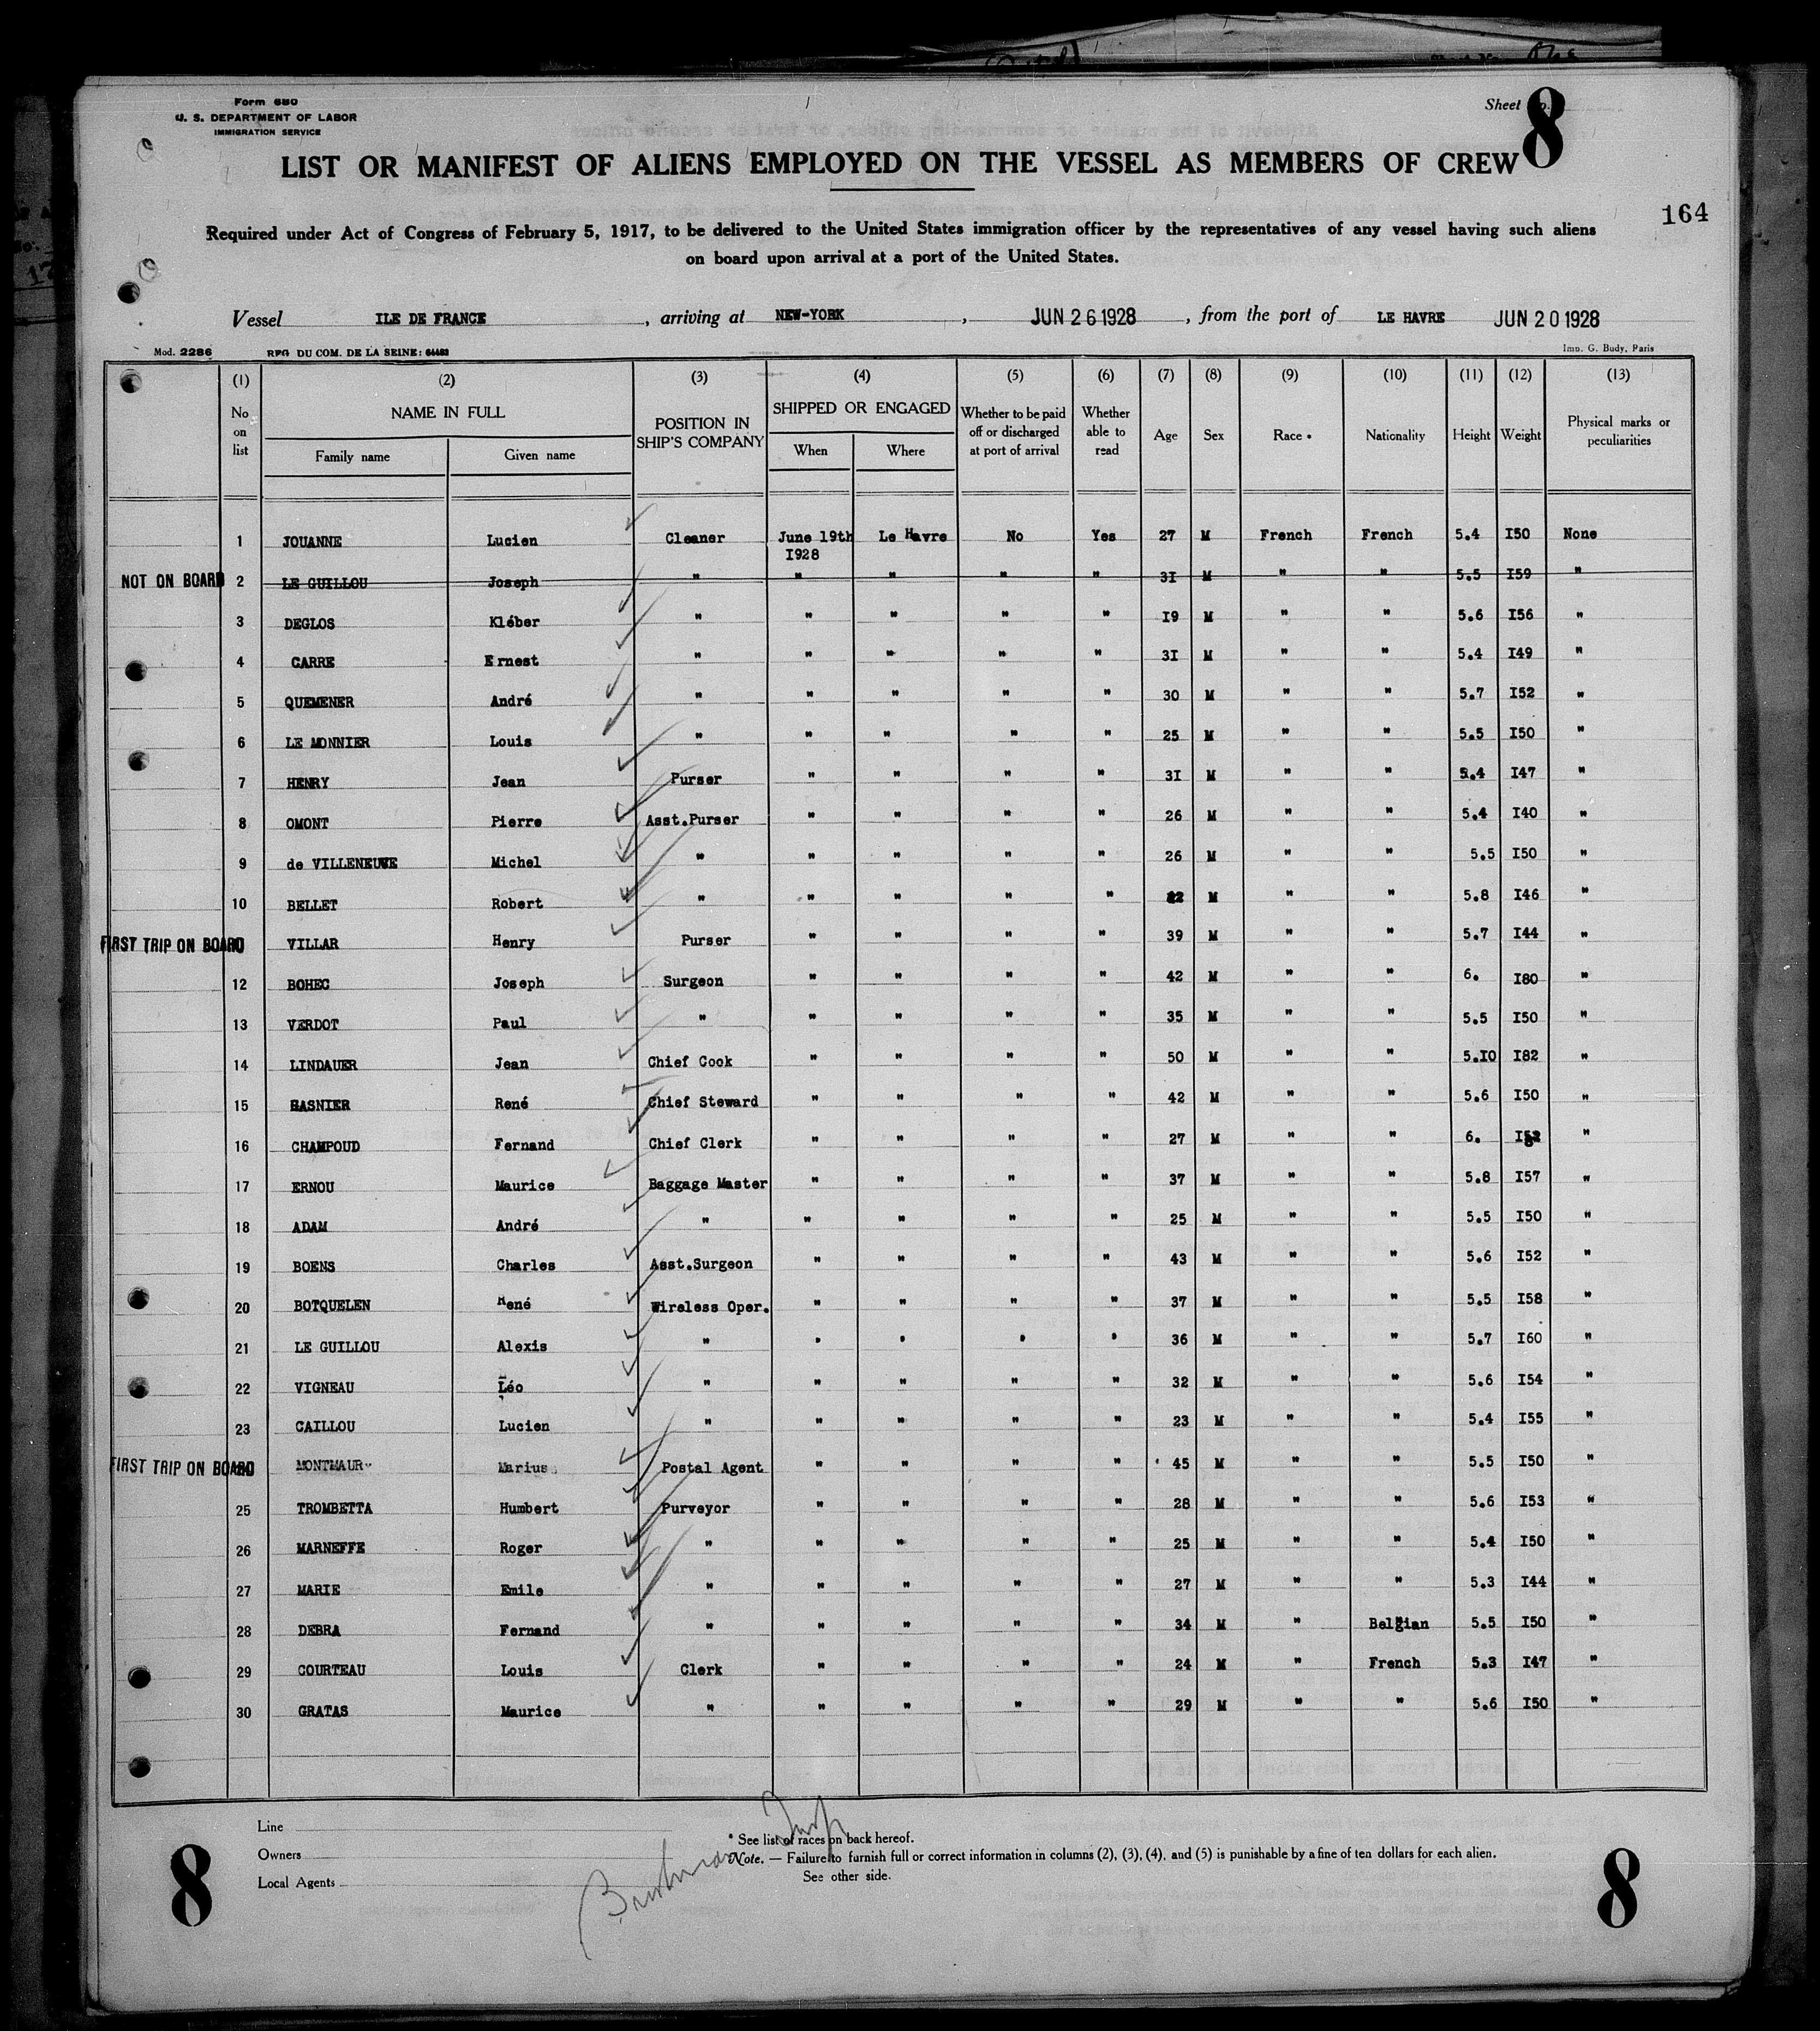 Form 680
U. S. DEPARTMENT OF LABOR
IMMIGRATION SERVICE
Sheet No. 8
LIST OR MANIFEST OF ALIENS EMPLOYED ON THE VESSEL AS MEMBERS OF CREW
164
Required under Act of Congress of February 5, 1917, to be delivered to the United States immigration officer by the representatives of any vessel having such aliens
on board upon arrival at a port of the United States.
Vessel ILE DE FRANCE, arriving at NEW-YORK, JUN 26 1928, from the port of LE HAVRE JUN 20 1928
Mod. 2286 REG DU COM. DE LA SEINE: 64483 Imp. G. Budy, Paris
(1) (2) (3) (4) (5) (6) (7) (8) (9) (10) (11) (12) (13)
No on list NAME IN FULL Family name Given name POSITION IN SHIP'S COMPANY SHIPPED OR ENGAGED When Where Whether to be paid off or discharged at port of arrival Whether able to read Age Sex Race * Nationality Height Weight Physical marks or peculiarities
1 JOUANNE Lucien Cleaner June 19th I928 Le Havre No Yes 27 M French French 5.4 I50 None
NOT ON BOARD 2 LE GUILLOU Joseph " " " " " 3I M " " 5.5 I59 "
3 DEGLOS Kléber " " " " " I9 M " " 5.6 I56 "
4 CARRE Ernest " " " " " 3I M " " 5.4 I49 "
5 QUEMENER André " " " " " 30 M " " 5.7 I52 "
6 LE MONNIER Louis " " " " " 25 M " " 5.5 I50 "
7 HENRY Jean Purser " " " " 3I M " " 5.4 I47 "
8 OMONT Pierre Asst.Purser " " " " 26 M " " 5.4 I40 "
9 de VILLENEUVE Michel " " " " " 26 M " " 5.5 I50 "
10 BELLET Robert " " " " " M " " 5.8 I46 "
FIRST TRIP ON BOARD VILLAR Henry Purser " " " " 39 M " " 5.7 I44 "
12 BOHEC Joseph Surgeon " " " " 42 M " " 6. I80 "
13 VERDOT Paul " " " " " 35 M " " 5.5 I50 "
14 LINDAUER Jean Chief Cook " " " " 50 M " " 5.I0 I82 "
15 HASNIER René Chief Steward " " " " 42 M " " 5.6 I50 "
16 CHAMPOUD Fernand Chief Clerk " " " " 27 M " " 6. "
17 ERNOU Maurice Baggage Master " " " " 37 M " " 5.8 I57 "
18 ADAM André " " " " " 25 M " " 5.5 I50 "
19 BOENS Charles Asst.Surgeon " " " " 43 M " " 5.6 I52 "
20 BOTQUELEN René Wireless Oper. " " " " 37 M " " 5.5 I58 "
21 LE GUILLOU Alexis " " " " " 36 M " " 5.7 I60 "
22 VIGNEAU Léo " " " " " 32 M " " 5.6 I54 "
23 CAILLOU Lucien " " " " " 23 M " " 5.4 I55 "
FIRST TRIP ON BOARD MONTMAUR Marius Postal Agent " " " " 45 M " " 5.5 I50 "
25 TROMBETTA Humbert Purveyor " " " " 28 M " " 5.6 I53 "
26 MARNEFFE Roger " " " " " 25 M " " 5.4 I50 "
27 MARIE Emile " " " " " 27 M " " 5.3 I44 "
28 DEBRA Fernand " " " " " 34 M " Belgian 5.5 I50 "
29 COURTEAU Louis Clerk " " " " 24 M " French 5.3 I47 "
30 GRATAS Maurice " " " " " 29 M " " 5.6 I50 "
Line
Owners
Local Agents
* See list of races on back hereof.
Note. — Failure to furnish full or correct information in columns (2), (3), (4), and (5) is punishable by a fine of ten dollars for each alien.
See other side.
8
8